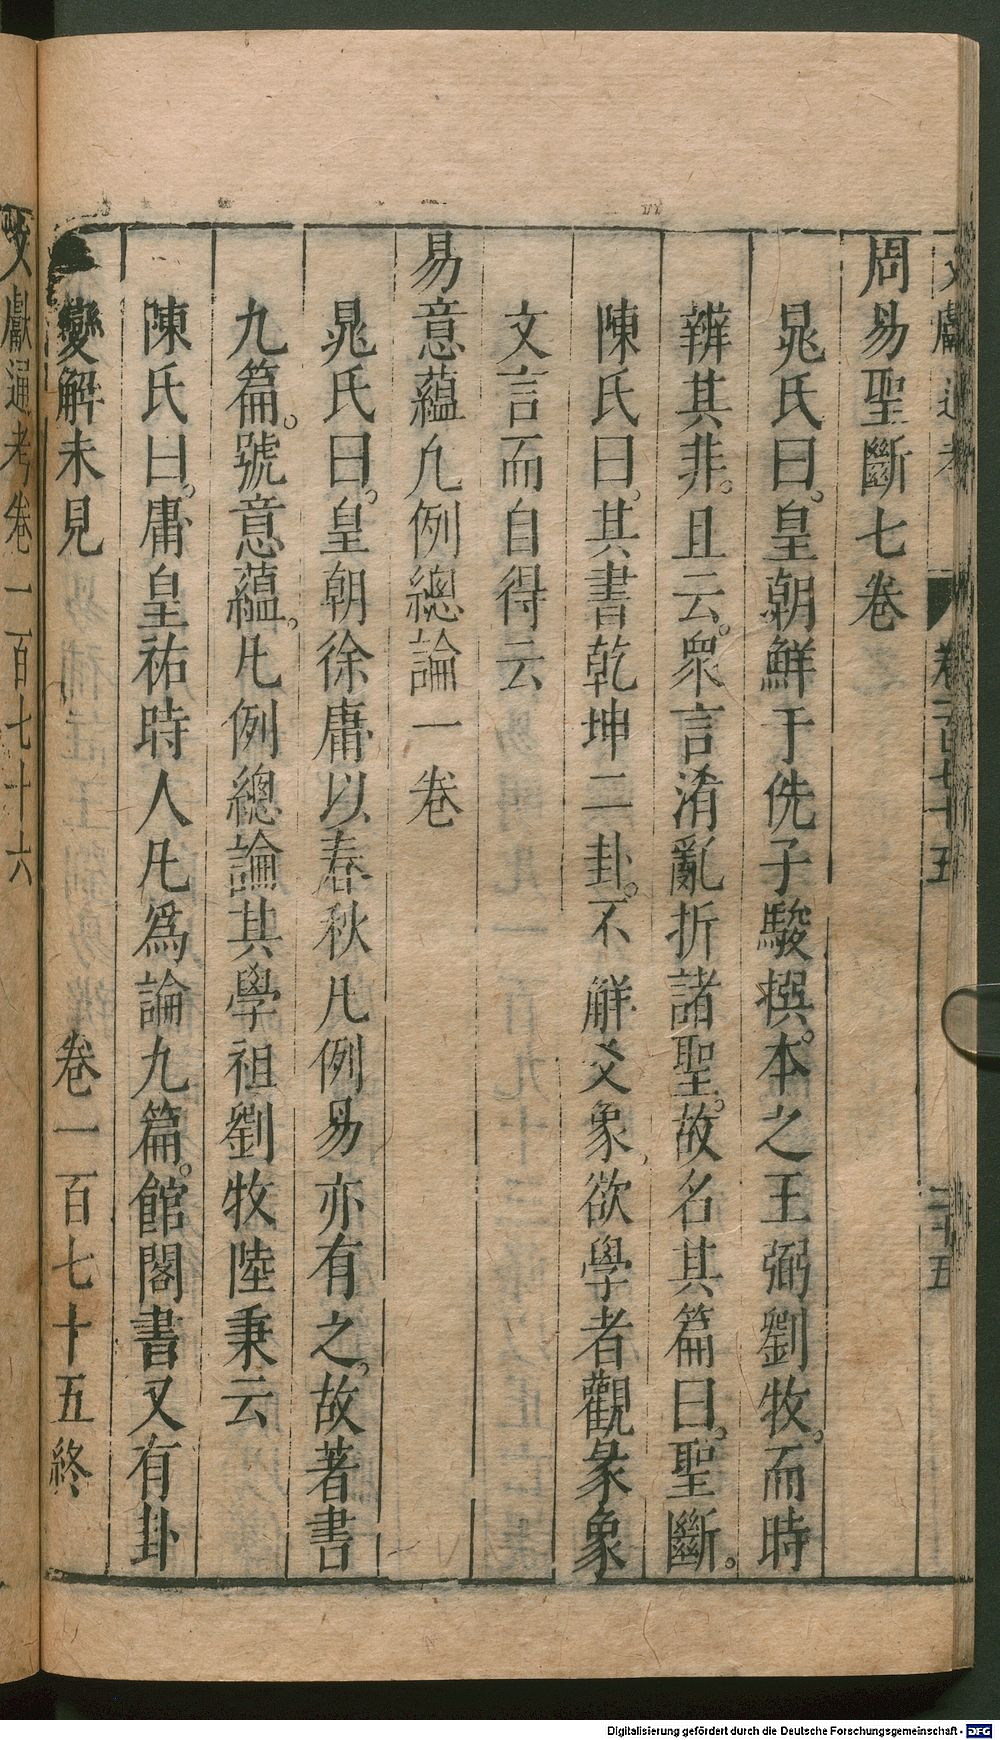 周易聖斷七卷
晁氏曰。皇朝鮮于侁子駿撰。本之王弼劉牧。而時
辨其非。且云。眾言淆亂折諸聖。故名其篇曰。聖斷。
陳氏曰。其書乾坤二卦。不解爻象、欲學者觀彖象
文言而自得云
易意蘊凡例總論一卷
晁氏曰。皇朝徐庸以春秋凡例易亦有之。故著書
九篇。號意蘊。凡例總論其學祖劉牧陸秉云
陳氏曰。庸皇祐時人凡爲論九篇。館閣書又有卦
變解未見 卷一百七十五終
文獻通考卷一百七十六
Digitalisierung gefördert durch die Deutsche Forschungsgemeinschaft - DFG